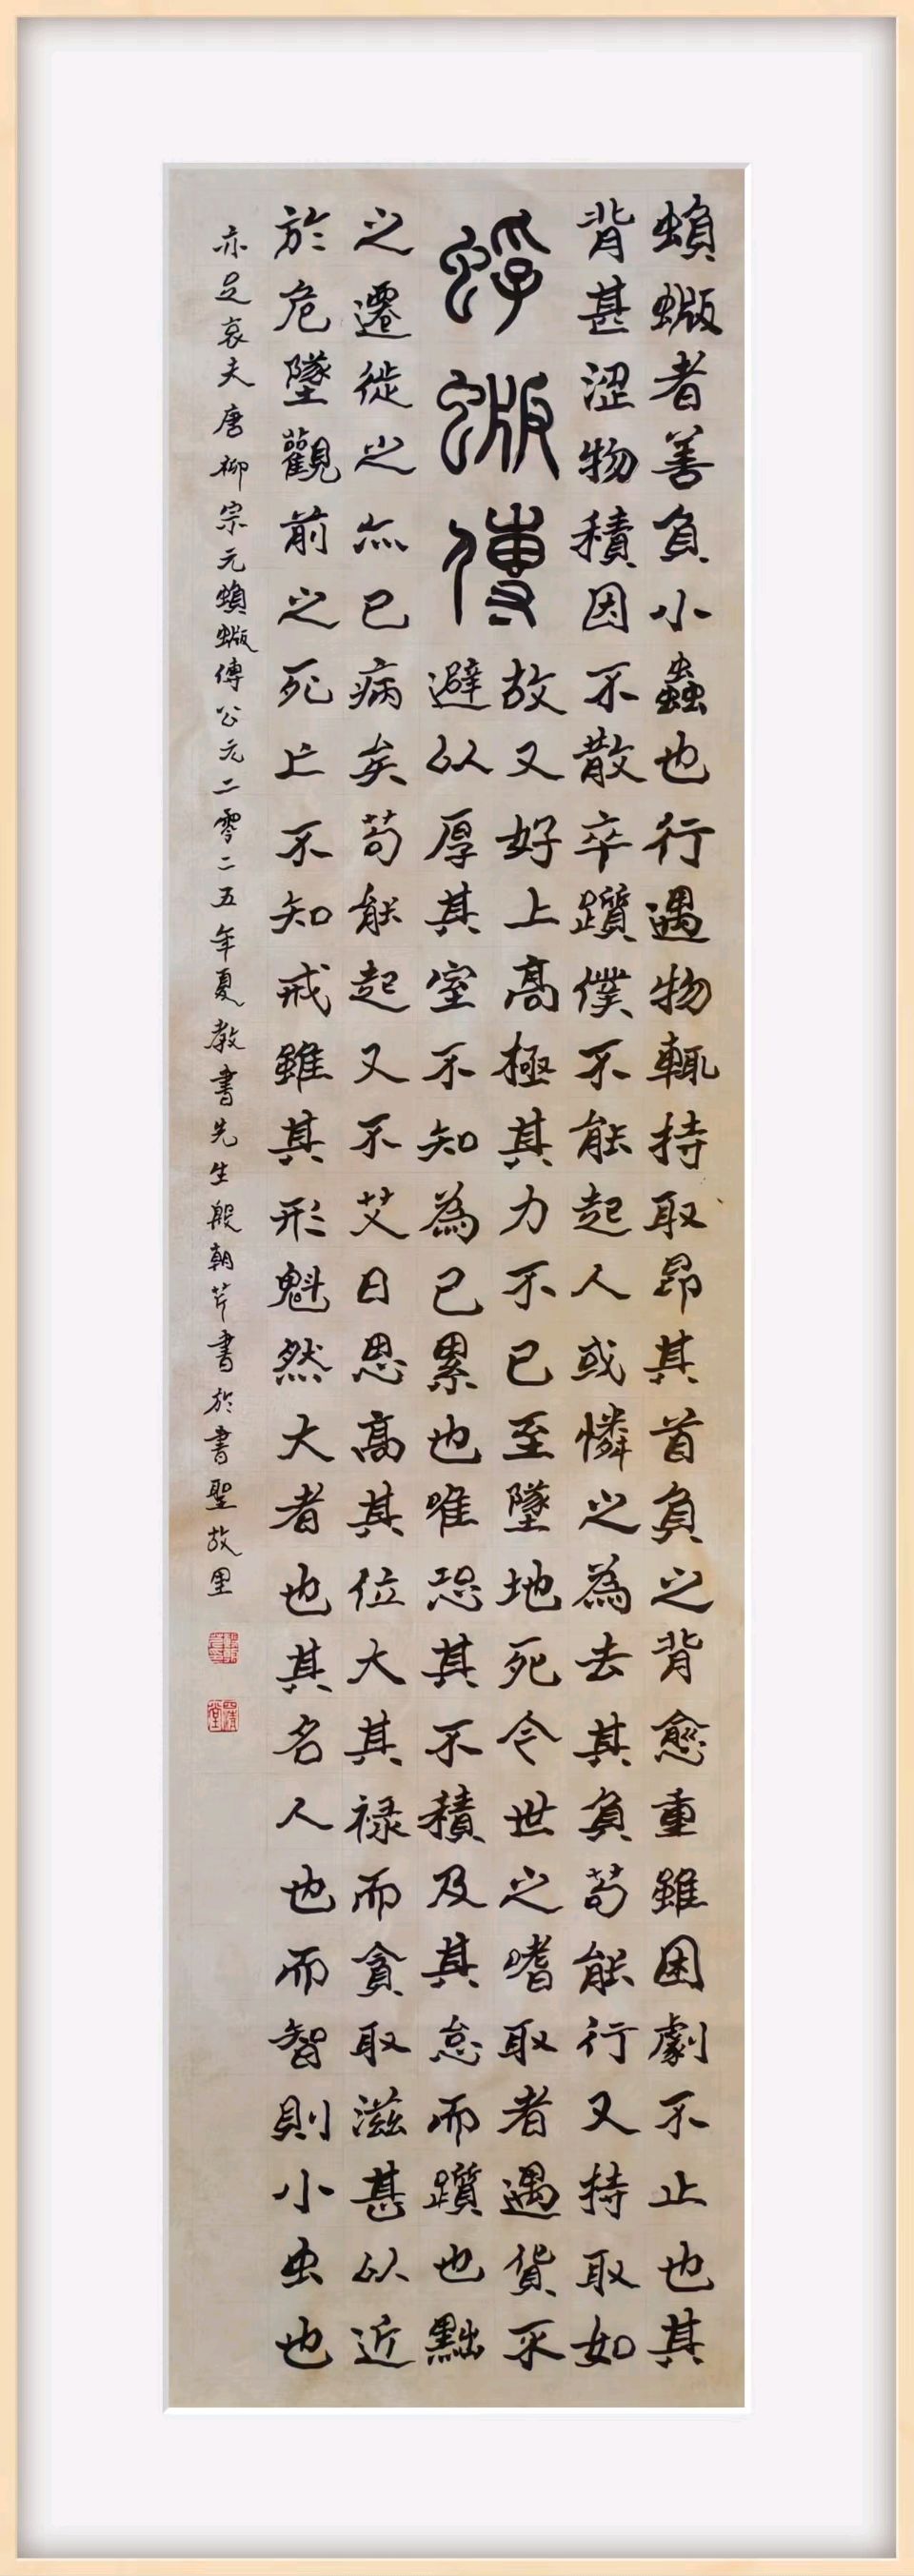 蝜蝂者善負小蟲也行遇物輒持取昂其首負之背愈重雖困劇不止也其
背甚涩物積因不散卒躓僕不能起人或憐之為去其負苟能行又持取如
蜉蝂傳
故又好上高極其力不已至墜地死今世之嗜取者遇貨不
避以厚其室不知為己累也唯恐其不積及其怠而躓也黜
之遷徙之亦已病矣苟能起又不艾日思高其位大其禄而貪取滋甚以近
於危墜觀前之死亡不知戒雖其形魁然大者也其名人也而智則小虫也
亦足哀夫唐柳宗元蝜蝂傳公元二零二五年夏教書先生殷朝芹書於書聖故里